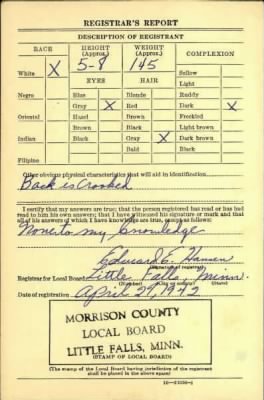 REGISTRAR'S REPORT
DESCRIPTION OF REGISTRANT
RACE HEIGHT (Approx.) WEIGHT (Approx.) COMPLEXION
White X 5-8 145 Sallow
EYES HAIR Light
Negro Blue Blonde Ruddy
Gray X Red Dark X
Oriental Hazel Brown Freckled
Brown Black Light brown
Indian Black Gray X Dark brown
Bald Black
Filipino
Other obvious physical characteristics that will aid in identification
Back is Crooked
I certify that my answers are true; that the person registered has read or has had
read to him his own answers; that I have witnessed his signature or mark and that
all of his answers of which I have knowledge are true, except as follows:
None to my Knowledge
Edward E. Hansen
(Signature of registrar)
Registrar for Local Board Little Falls, Minn.
(Number) (City or county) (State)
Date of registration April 27, 1942
MORRISON COUNTY
LOCAL BOARD
LITTLE FALLS, MINN.
(STAMP OF LOCAL BOARD)
(The stamp of the Local Board having jurisdiction of the registrant
shall be placed in the above space)